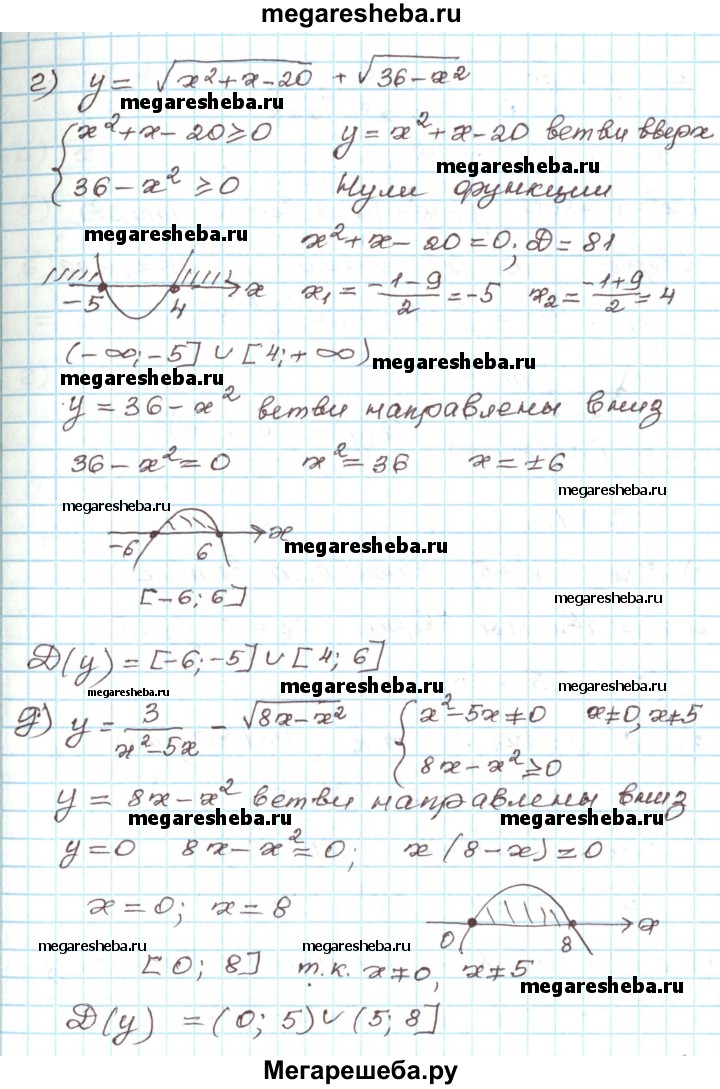 megaresheba.ru
г) y = √(x²+x-20) + √(36-x²)
megaresheba.ru
{ x²+x-20≥0 y = x²+x-20 ветви вверх
megaresheba.ru
36-x²≥0 Нули функции
megaresheba.ru
x²+x-20=0; D=81
-5 4 x x₁ = (-1-9)/2 = -5 x₂ = (-1+9)/2 = 4
(-∞;-5] ∪ [4;+∞)
megaresheba.ru
megaresheba.ru
y = 36-x² ветви направлены вниз
36-x²=0 x²=36 x=±6
megaresheba.ru
megaresheba.ru
-6 6 x
megaresheba.ru
[-6; 6]
megaresheba.ru
D(y) = [-6;-5] ∪ [4; 6]
megaresheba.ru
megaresheba.ru
megaresheba.ru
д) y = 3/(x²-5x) - √(8x-x²) { x²-5x≠0 x≠0, x≠5
8x-x²≥0
y = 8x-x² ветви направлены вниз
megaresheba.ru
megaresheba.ru
y=0 8x-x²=0; x(8-x)=0
x=0; x=8
0 8 x
megaresheba.ru
megaresheba.ru
[0; 8] т.к. x≠0, x≠5
megaresheba.ru
D(y) = (0; 5) ∪ (5; 8]
Мегарешеба.ру